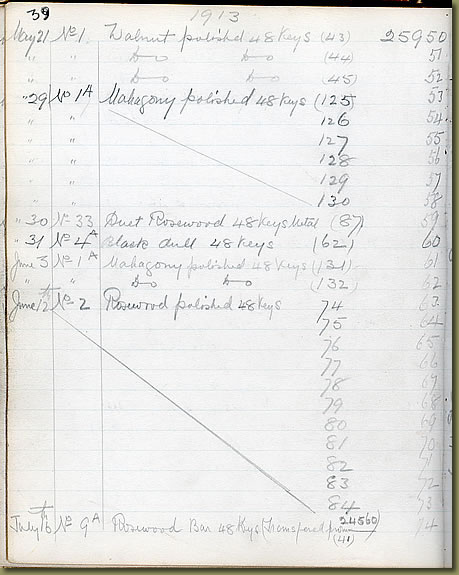 39 1913
May 21 No 1. Walnut polished 48 Keys (43) 25950
" " Do Do (44) 51
" " Do Do (45) 52
" 29 No 1A Mahogony polished 48 Keys (125) 53
" " 126 54
" " 127 55
" " 128 56
" " 129 57
" " 130 58
" 30 No 33 Duet Rosewood 48 Keys Metal (87) 59
" 31 No 4A Black dull 48 Keys (62) 60
June 3 No 1A Mahogony polished 48 Keys (131) 61
" " Do Do (132) 62
June 12th No 2 Rosewood polished 48 Keys 74 63
75 64
76 65
77 66
78 67
79 68
80 69
81 70
82 71
83 72
84 73
July 16th No 9A Rosewood Bar 48 Keys (Transfered from 24560) 74
(41)